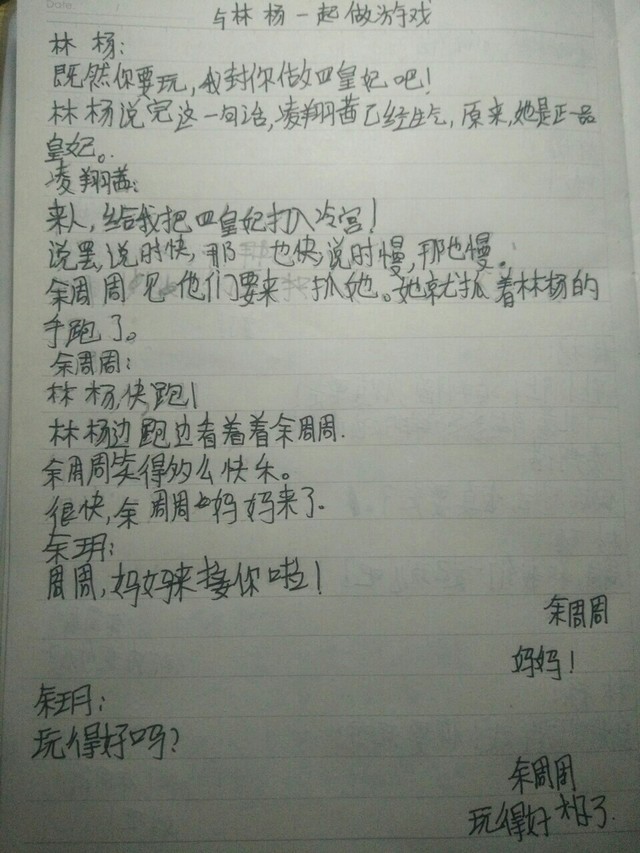 Date.
与林杨一起做游戏
林杨:
既然你要玩,我封你做四皇妃吧!
林杨说完这一句话,凌翔茜已经生气,原来,她是正一品
皇妃。
凌翔茜:
来人,给我把四皇妃打入冷宫!
说罢,说时快,那 也快,说时慢,那也慢。
余周周见他们要来 抓她。她就抓着林杨的
手跑了。
余周周:
林杨,快跑!
林杨边跑边看着着余周周.
余周周笑得多么快乐。
很快,余周周 妈妈来了.
余玥:
周周,妈妈来接你啦!
余周周
妈妈!
余玥:
玩得好吗?
余周周
玩得好 了.